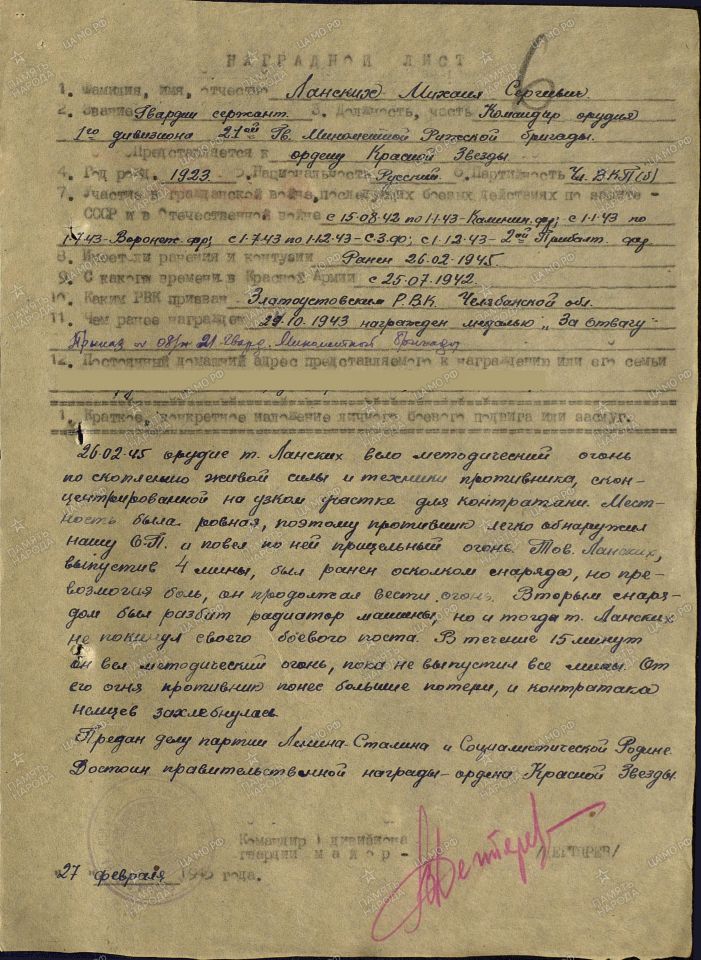 НАГРАДНОЙ ЛИСТ
6
1. Фамилия, имя, отчество Ланских Михаил Сергеевич
2. Звание Гвардии сержант 3. Должность, часть Командир орудия
1го дивизиона 21ой Гв. Минометной Рижской бригады.
Представляется к ордену Красной Звезды
4. Год рожд. 1923 5. Национальность Русский 6. Партийность Чл. ВКП(б)
7. Участие в гражданской войне, последующих боевых действиях по защите
СССР и в Отечественной войне с 15-08-42 по 1-1-43-Калинин. фр; с 1-1-43 по
1-7-43-Воронеж. фр; с 1-7-43 по 1-12-43-С-З.ф; с 1-12-43-2ой Прибалт. фр
8. Имеет ли ранения и контузии Ранен 26.02.1945
9. С какого времени в Красной Армии с 25.07.1942.
10. Каким РВК призван Златоустовским Р.В.К. Челябинской обл.
11. Чем ранее награжден 29.10.1943 награжден медалью „За отвагу
Приказ № 08/н 21 Гвард. Минометной бригады
12. Постоянный домашний адрес представляемого к награждению или его семьи
1. Краткое, конкретное изложение личного боевого подвига или заслуг.
26.02.45 орудие т. Ланских вело методический огонь
по скоплению живой силы и техники противника, скон-
центрированной на узком участке для контратаки. Мест-
ность была ровная, поэтому противник легко обнаружил
нашу О.П. и повел по ней прицельный огонь. Тов. Ланских,
выпустив 4 мины, был ранен осколком снаряда, но пре-
возмогая боль, он продолжал вести огонь. Вторым снаря-
дом был разбит радиатор машины, но и тогда т. Ланских
не покинул своего боевого поста. В течение 15 минут
он вел методический огонь, пока не выпустил все мины. От
его огня противник понес большие потери, и контратака
немцев захлебнулась.
Предан делу партии Ленина-Сталина и Социалистической Родине.
Достоин правительственной награды-ордена Красной Звезды.
Командир 1 дивизиона
гвардии майор - /ДЕГТЯРЕВ/
"27" февраля 1945 года.